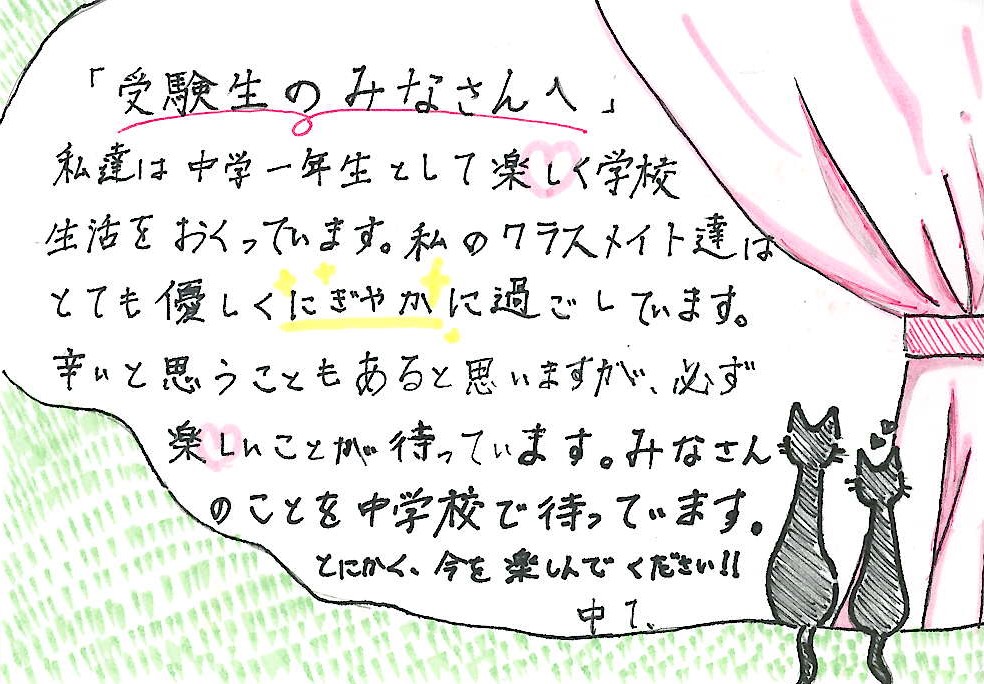 「受験生のみなさんへ」
私達は中学一年生として楽しく学校
生活をおくっています。私のクラスメイト達は
とても優しくにぎやかに過ごしています。
辛いと思うこともあると思いますが、必ず
楽しいことが待っています。みなさん
のことを中学校で待っています。
とにかく、今を楽しんでください!!
中1、